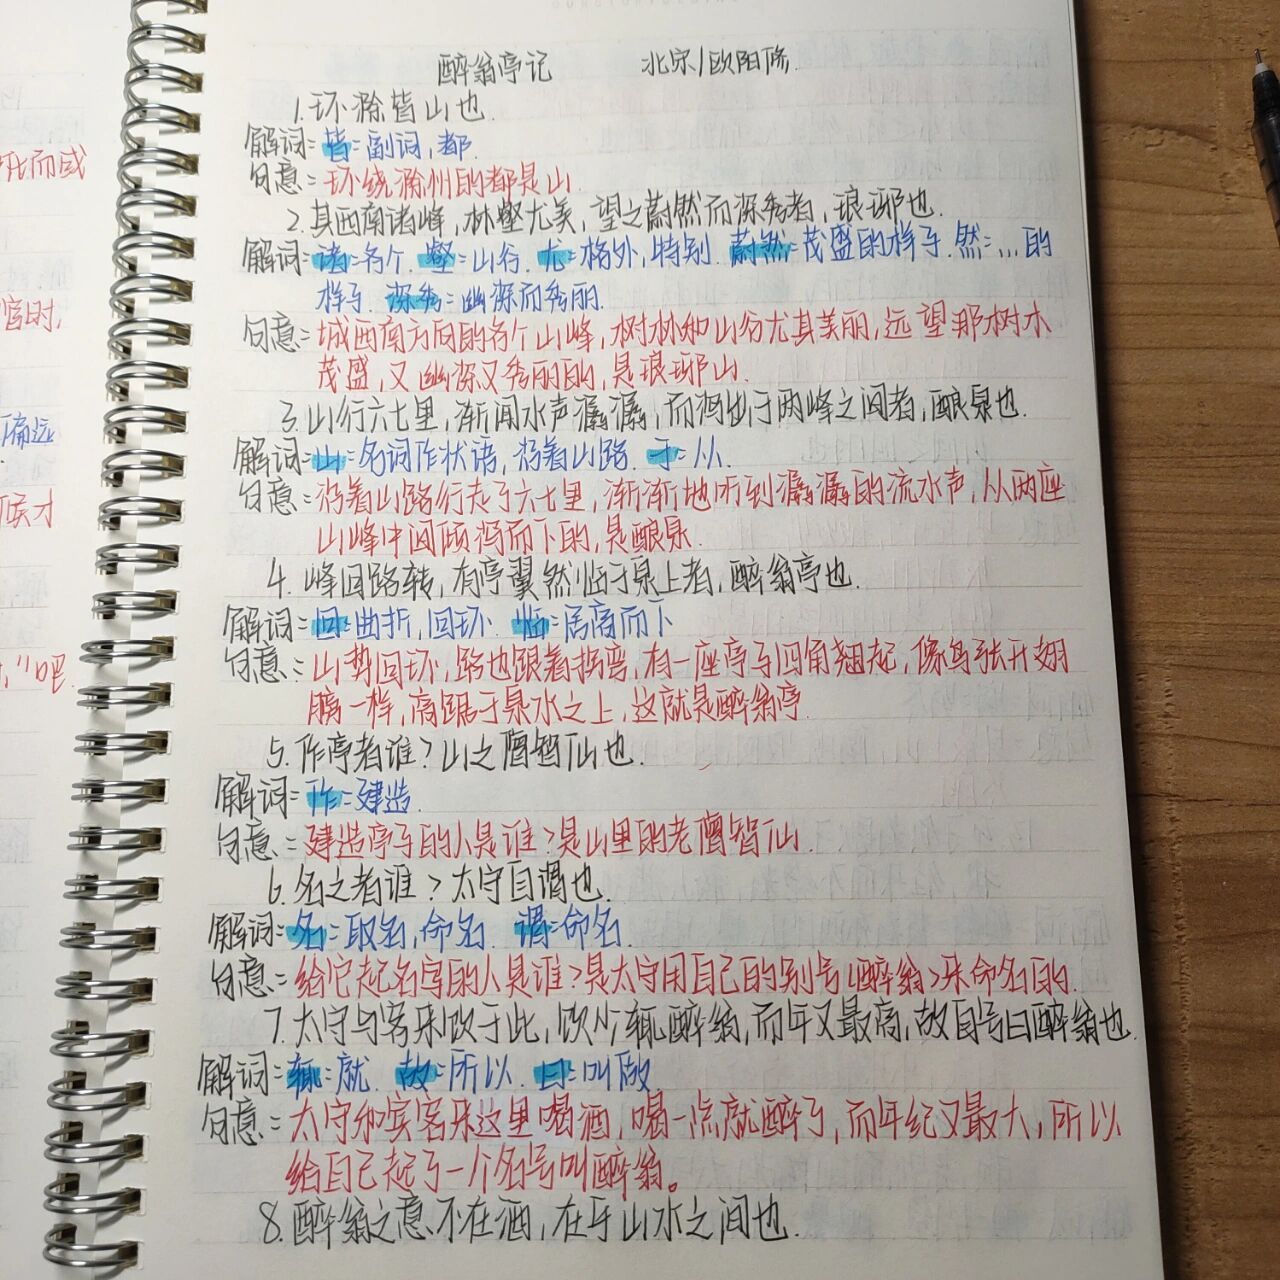 醉翁亭记 北宋/欧阳修
1.环滁皆山也.
解词:皆:副词,都.
句意:环绕滁州的都是山.
2.其西南诸峰,林壑尤美,望之蔚然而深秀者,琅琊也.
解词:诸:各个.壑:山谷.尤:格外,特别.蔚然:茂盛的样子.然:...的
样子 深秀:幽深而秀丽.
句意:城西南方向的各个山峰,树林和山谷尤其美丽,远望那树木
茂盛,又幽深又秀丽的,是琅琊山.
3.山行六七里,渐闻水声潺潺,而泻出于两峰之间者,酿泉也.
解词:山:名词作状语,沿着山路.于:从.
句意:沿着山路行走了六七里,渐渐地听到潺潺的流水声,从两座
山峰中间倾泻而下的,是酿泉.
4.峰回路转,有亭翼然临于泉上者,醉翁亭也.
解词:回:曲折,回环.临:居高而下
句意:山势回环,路也跟着拐弯,有一座亭子四角翘起,像鸟张开翅
膀一样,高踞于泉水之上,这就是醉翁亭.
5.作亭者谁?山之僧智仙也.
解词:作:建造.
句意:建造亭子的人是谁?是山里的老僧智仙.
6.名之者谁?太守自谓也.
解词:名:取名,命名.谓:命名.
句意:给它起名字的人是谁?是太守用自己的别号(醉翁)来命名的.
7.太守与客来饮于此,饮少辄醉翁,而年又最高,故自号曰醉翁也.
解词:辄:就.故:所以.曰:叫做.
句意:太守和宾客来这里喝酒,喝一点就醉了,而年纪又最大,所以
给自己起了一个名号叫醉翁。
8.醉翁之意不在酒,在乎山水之间也.
死而咸
官时,
偏远
候才
,"吧.